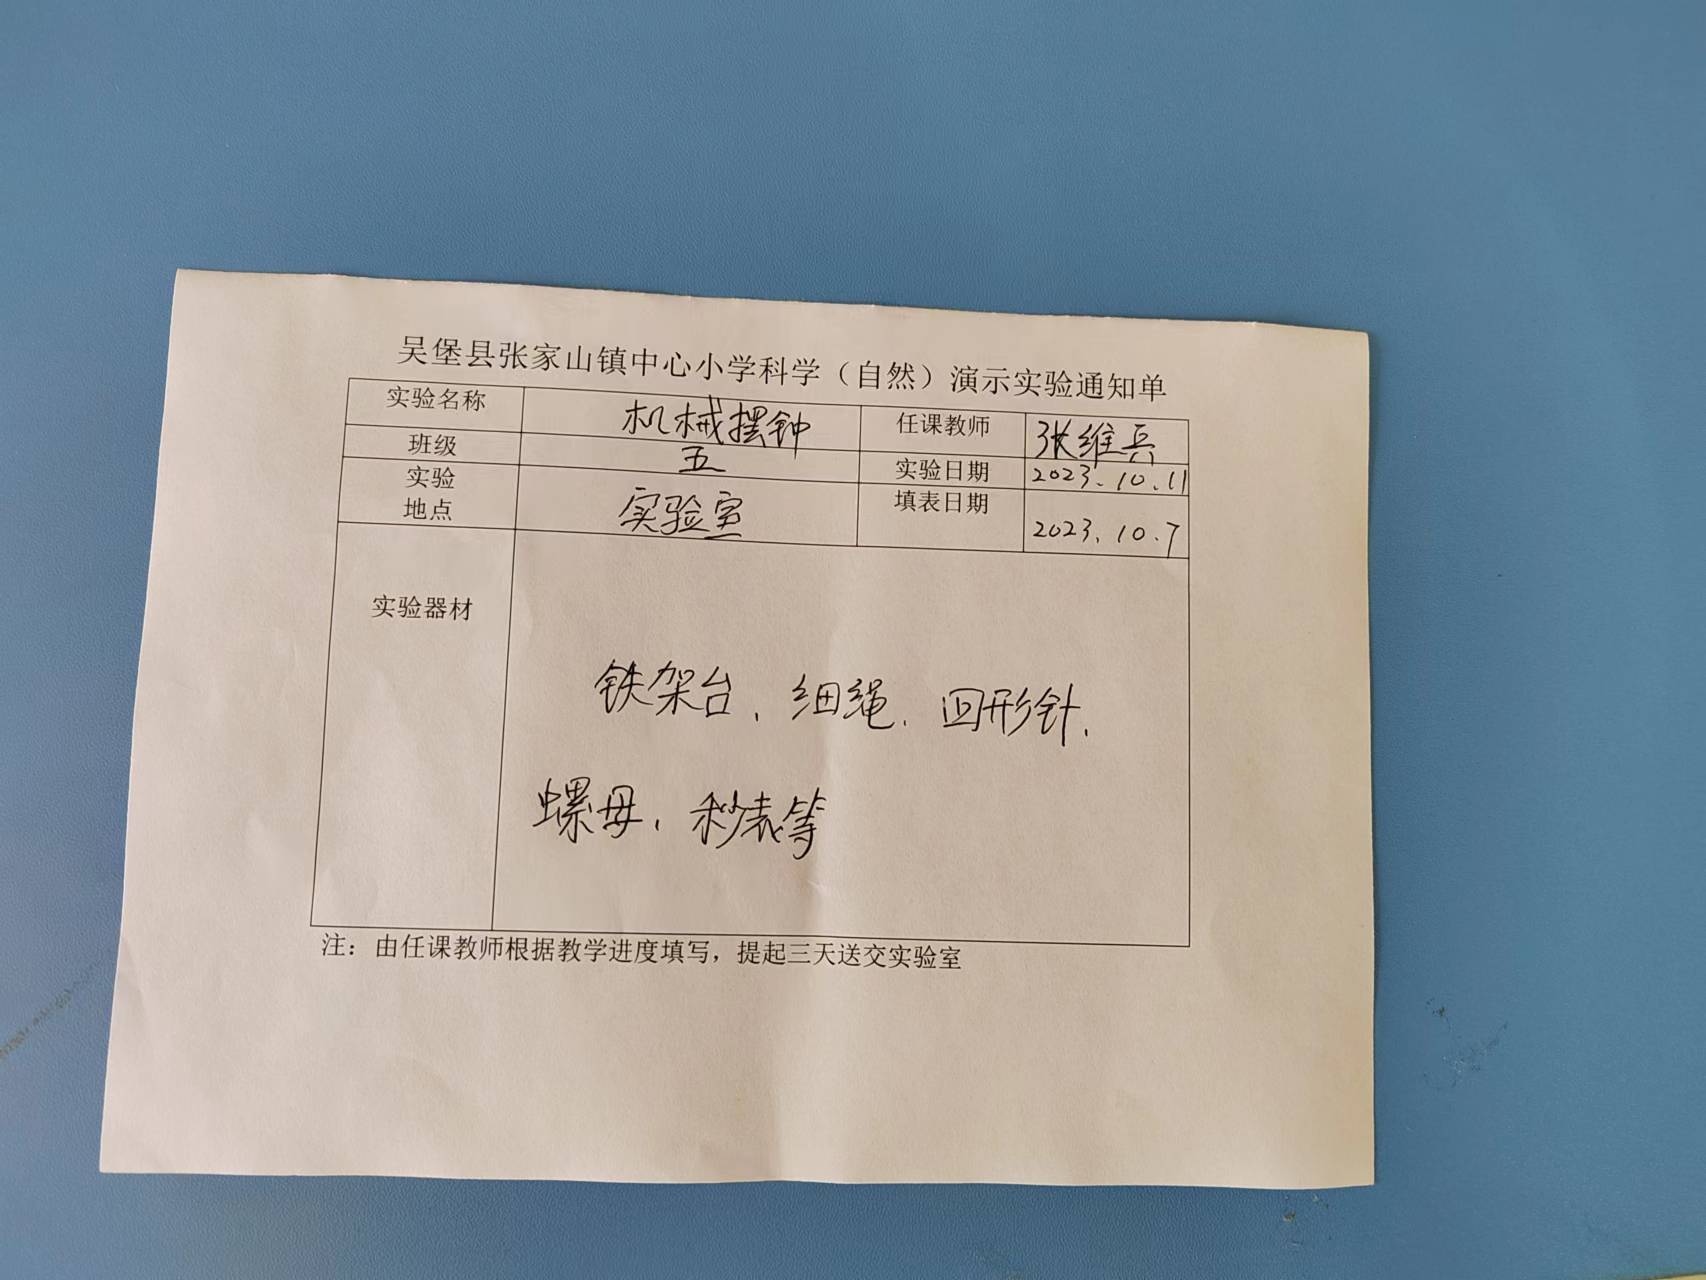 吴堡县张家山镇中心小学科学（自然）演示实验通知单
实验名称 机械摆钟 任课教师 张维兵
班级 五 实验日期 2023.10.11
实验
地点 实验室 填表日期 2023.10.7
实验器材
铁架台、细绳、回形针、
螺母、秒表等
注：由任课教师根据教学进度填写，提起三天送交实验室